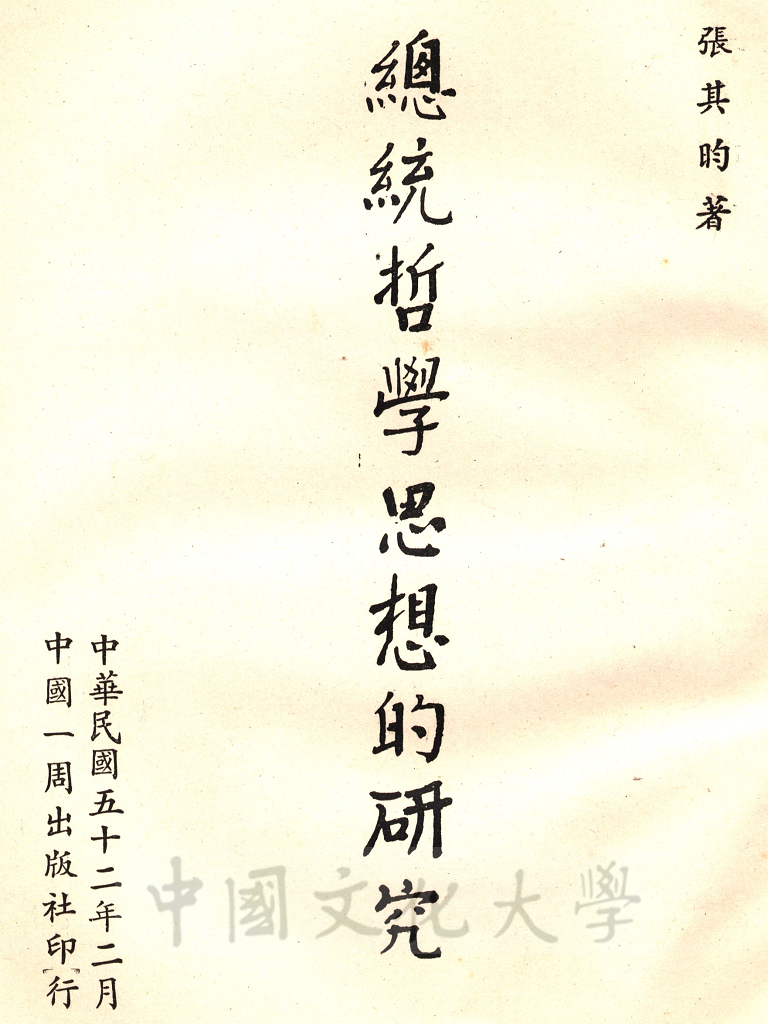 張其昀著
總統哲學思想的研究
中華民國五十二年二月
中國一周出版社印行
中國文化大學